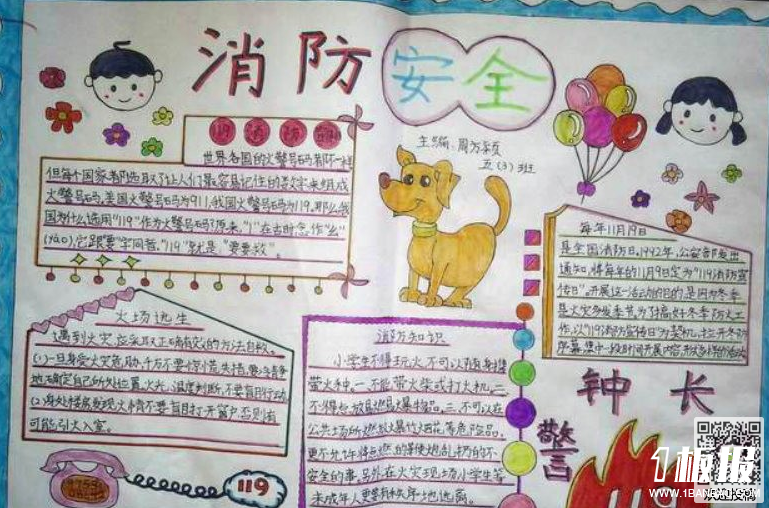 消防安全
主编:周芳颖
五(3)班
119消防
世界各国的火警号码都不一样
但每个国家都选取了让人们最容易记住的数字来组成
火警号码,美国火警号码为911,我国火警号码为119.那么我
国为什么选用"119"作为火警号码?原来,"1"在古时念作"幺"
(yāo),它跟"要"字同音。"119"就是,"要要救"。
每年11月19日
是全国消防日,1992年,公安部发出
通知,将每年的11月9日定为"119消防宣
传日".开展这一活动的目的是因为冬季
是火灾多发季节,为搞好冬季防火工
作,以"119消防宣传日"为契机,拉开冬防
序幕,集中一段时间开展内容,形式多样的活动
火场逃生
遇到火灾,应采取正确有效的方法自救。
(1)一旦身受火灾危胁,千万不要惊慌失措,要冷静
地确定自己所处位置,火光,温度判断,不要盲目行动
(2)身处楼房发现火情不要盲目打开窗户,否则有
可能引火入室。
消防知识
小学生不得玩火,不可以随身携
带火种,一.不能带火柴或打火机,二.
不得点放易燃易爆物品,三.不可以在
公共场所燃放爆竹烟花等危险品。
更不允许将点燃的
安全的事。另外在火灾现场小学生等
未成年人更要有秩序地逃离。
警钟长
119
1板报
WWW.1BANBAO.COM